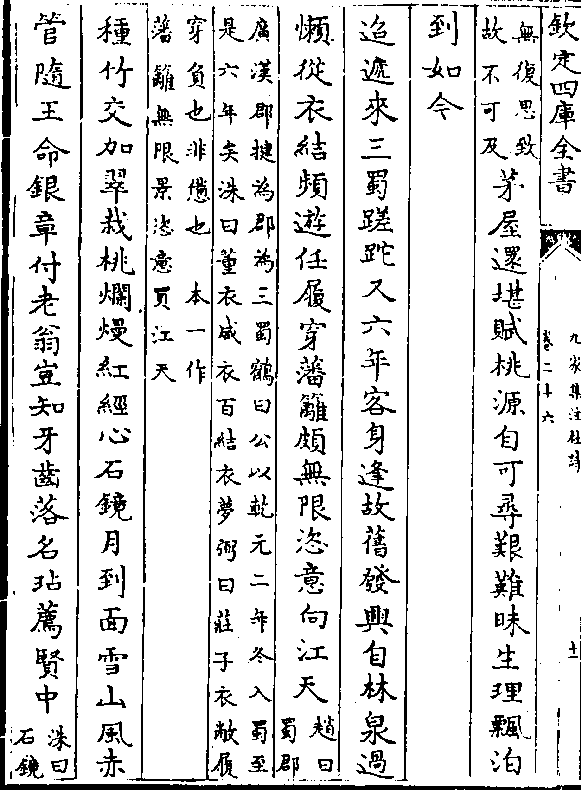 欽定四庫全書
九家集注杜詩
卷二十六
十一
無復思致
故不可及
茅屋還堪賦桃源自可尋艱難昧生理飄泊
到如今
迢遞來三蜀蹉跎又六年客身逢故舊發興自林泉過
懶從衣結頻遊任履穿藩籬頗無限恣意向江天
趙曰
蜀郡
廣漢郡揵為郡為三蜀鶴曰公以乾元二年冬入蜀至
是六年矣洙曰董衣威衣百結衣夢弼曰莊子衣敝履
穿負也非憊也 本一作
藩籬無限景恣意買江天
種竹交加翠栽桃爛熳紅經心石鏡月到面雪山風赤
管隨王命銀章付老翁豈知牙齒落名玷薦賢中
洙曰
石鏡